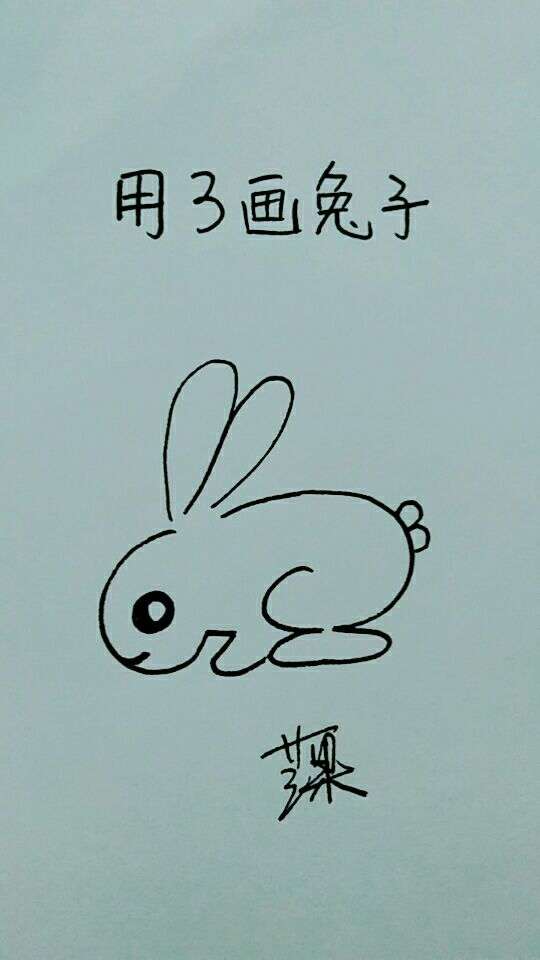 用3画兔子